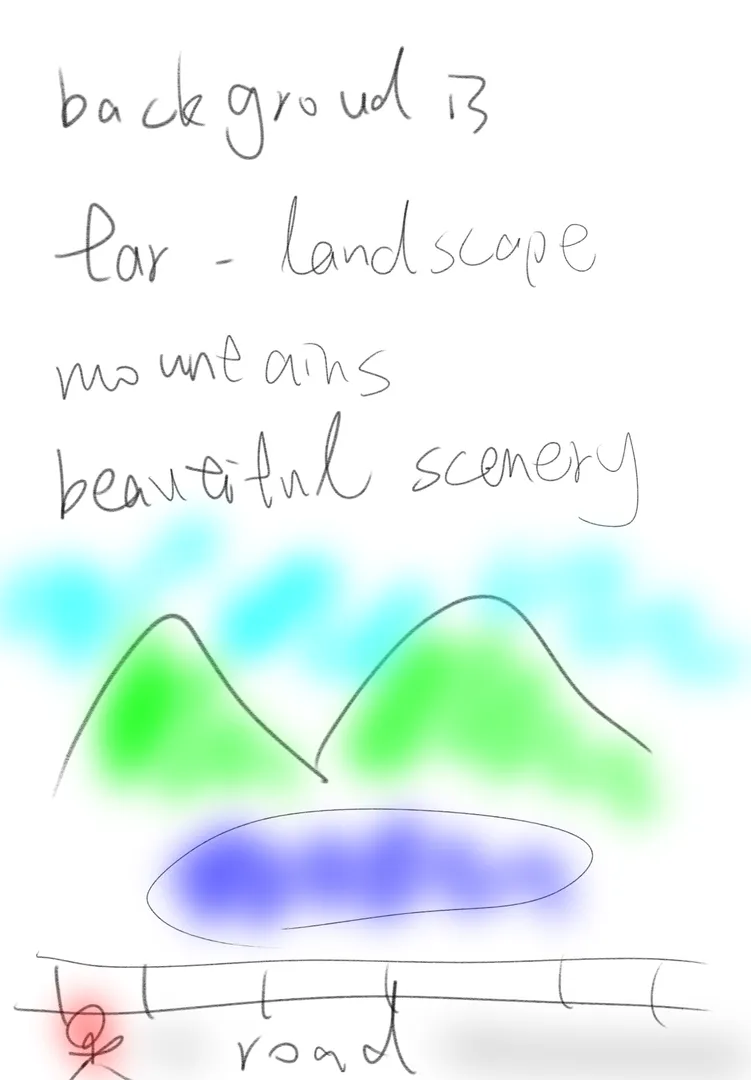 backgroud is
far - landscape
mountains
beautiful scenery
road